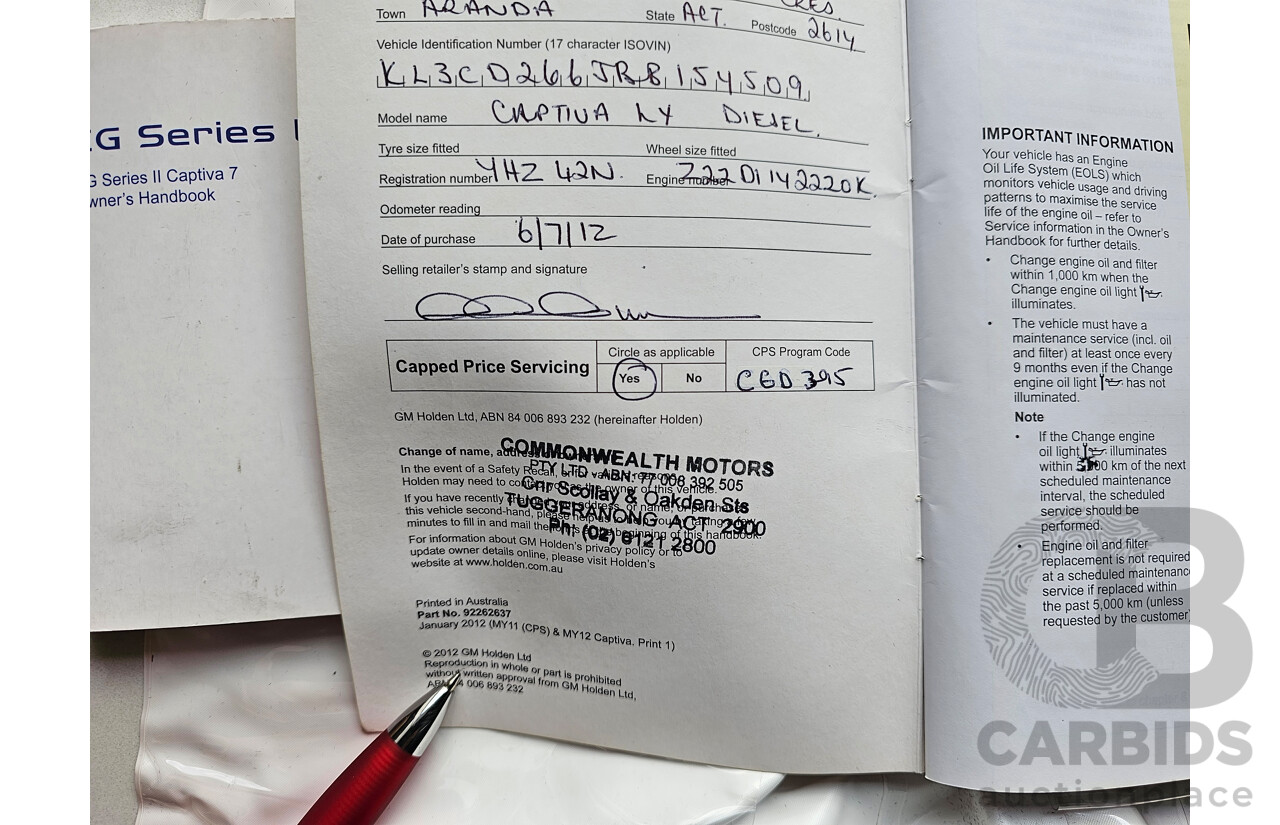 CG Series
G Series II Captiva 7
wner's Handbook
CRES.
Town ARANDA State ACT. Postcode 2614
Vehicle Identification Number (17 character ISOVIN)
KL3CD266JRB154509
Model name CAPTIVA LX DIESEL.
Tyre size fitted Wheel size fitted
Registration number YHZ 42N. Engine number Z22D1142220K
Odometer reading
Date of purchase 6/7/12
Selling retailer's stamp and signature
Capped Price Servicing
Circle as applicable
Yes No
CPS Program Code
CGD395
GM Holden Ltd, ABN 84 006 893 232 (hereinafter Holden)
COMMONWEALTH MOTORS
PTY LTD - ABN: 77 008 392 505
Cnr Scollay & Oakden Sts
TUGGERANONG ACT 2900
Ph: (02) 6121 2800
Change of name, address
In the event of a Safety Recall,
Holden may need to contact you as the owner of this vehicle.
If you have recently changed your address, or name, or purchased
this vehicle second-hand, please help us to help you by taking a few
minutes to fill in and mail the beginning of this handbook.
For information about GM Holden's privacy policy or to
update owner details online, please visit Holden's
website at www.holden.com.au
Printed in Australia
Part No. 92262637
January 2012 (MY11 (CPS) & MY12 Captiva. Print 1)
© 2012 GM Holden Ltd
Reproduction in whole or part is prohibited
without written approval from GM Holden Ltd,
ABN 84 006 893 232
IMPORTANT INFORMATION
Your vehicle has an Engine
Oil Life System (EOLS) which
monitors vehicle usage and driving
patterns to maximise the service
life of the engine oil – refer to
Service information in the Owner's
Handbook for further details.
• Change engine oil and filter
within 1,000 km when the
Change engine oil light
illuminates.
• The vehicle must have a
maintenance service (incl. oil
and filter) at least once every
9 months even if the Change
engine oil light has not
illuminated.
Note
• If the Change engine
oil light illuminates
within km of the next
scheduled maintenance
interval, the scheduled
service should be
performed.
• Engine oil and filter
replacement is not required
at a scheduled maintenance
service if replaced within
the past 5,000 km (unless
requested by the customer)
CB
CARBIDS
auctionplace